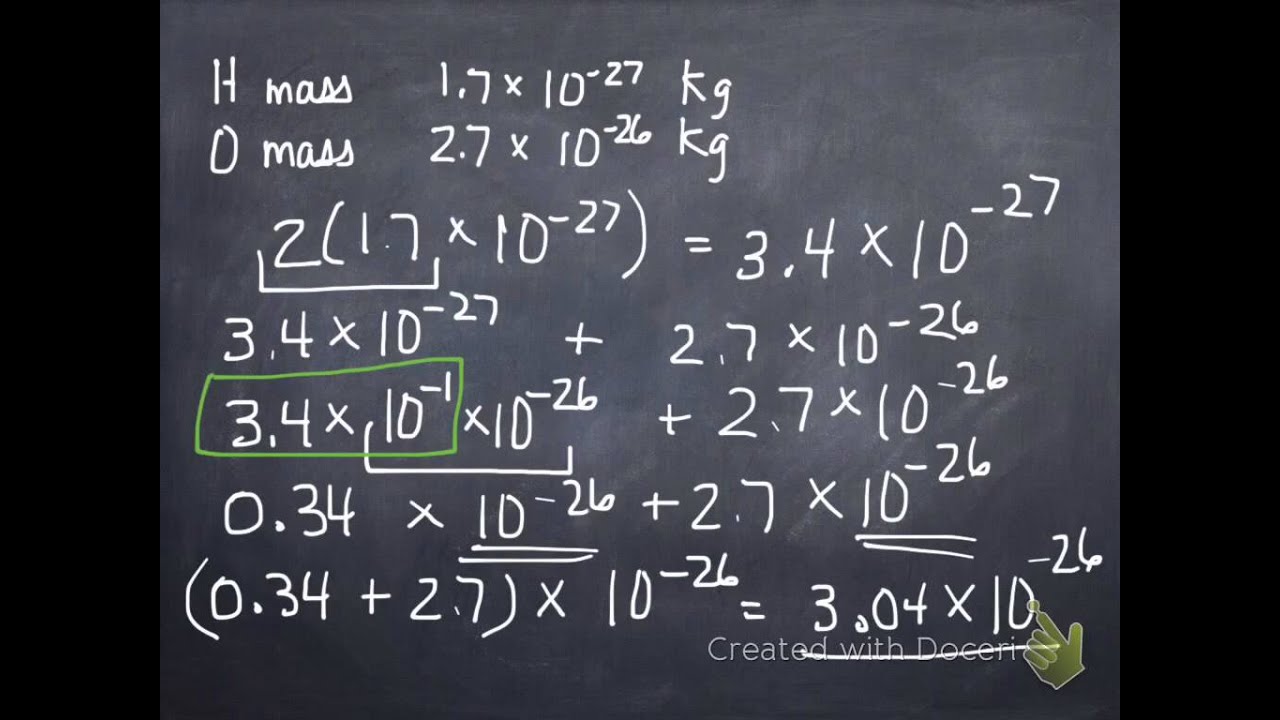 H mass 1.7 × 10⁻²⁷ Kg
O mass 2.7 × 10⁻²⁶ Kg
2(1.7 × 10⁻²⁷) = 3.4 × 10⁻²⁷
3.4 × 10⁻²⁷ + 2.7 × 10⁻²⁶
3.4 × 10⁻¹ × 10⁻²⁶ + 2.7 × 10⁻²⁶
0.34 × 10⁻²⁶ + 2.7 × 10⁻²⁶
(0.34 + 2.7) × 10⁻²⁶ = 3.04 × 10⁻²⁶
Created with Doceri